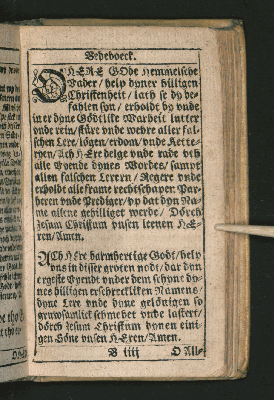 Bedeboeck.
O HERE Godt hemmelische
Vader / help dyner hilligen
Christenheit / lath se dy be-
fahlen syn / erholdt by vnde
in er dyne Gödtlike Warheit lutter
vnde rein / stüre vnde wehre aller fal-
schen Lere / lögen / erdom / vnde Kette-
ryen / Ach HEre delge vnde rade vth
alle Vyende dynes Wordes / sampt
allen falschen Lerern / Regere vnde
erholdt alle frame rechtschapen Par-
heren vnde Prediger / vp dat dyn Na-
me allene gehilliget werde / Dörch
Jesum Christum vnsen leenen HE-
ren / Amen.
ACh HEre barmhertige Godt / help
vns in disser groten nodt / dar dyn
ergeste Vyendt vnder dem schyne dy-
nes hilligen erschrecklken Namens /
dyne Lere vnde dyne gelöuigen so
gruwsamlick schmehet vnde lastert /
dörch Jesum Christum dynen eini-
gen Söne vnsen HEren / Amen.
B iiij
O All-